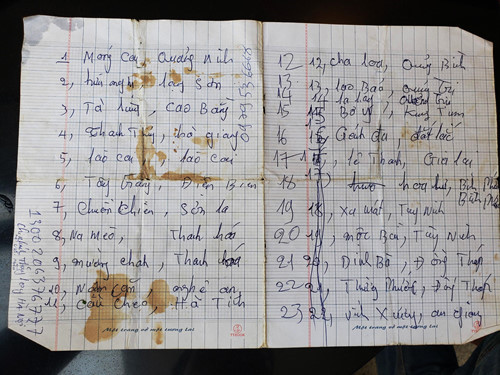 1 Móng Cái, Quảng Ninh
2, hữu nghị, lạng Sơn
3, Tà lùng, Cao Bằng
4, Thanh Thủy, hà giang
5, lào cai, lào cai
6, Tây trang, Điện Biên
7, Chiềng Sơn la
8, Na mèo, Thanh hoá
9, mường chát, Thanh hoá
10, Nậm Cắn, nghệ an
11, Cầu Cheo, Hà Tĩnh
Một trang vở một tương lai
12 12, cha loa, Quảng Bình
13 13, lao Bảo, Quảng Trị
14 14 la lay, Quảng Trị
15 15 Bờ Y, Kung Tum
16 16 đắt lắc
17 17, lê Thanh, Gia lai
18 hoa lư, Bình Phước
19 18, Xa mát, Tây Ninh
20 19, mộc Bài, Tây Ninh
21 20, Dinh Bà, Đồng Tháp
22 21, Thường Phước, Đồng Tháp
23 22, vĩnh Xương, an giang
Một trang vở một tương lai